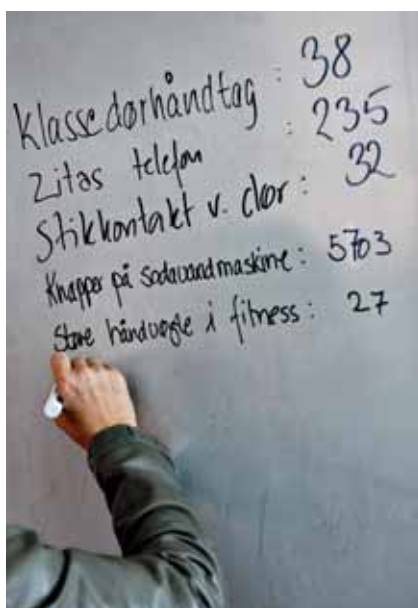 Klassedørhåndtag : 38
Zitas telefon : 235
Stikkontakt v. dør : 32
Knapper på sodavandmaskine : 5703
Store håndvægte i fitness : 27